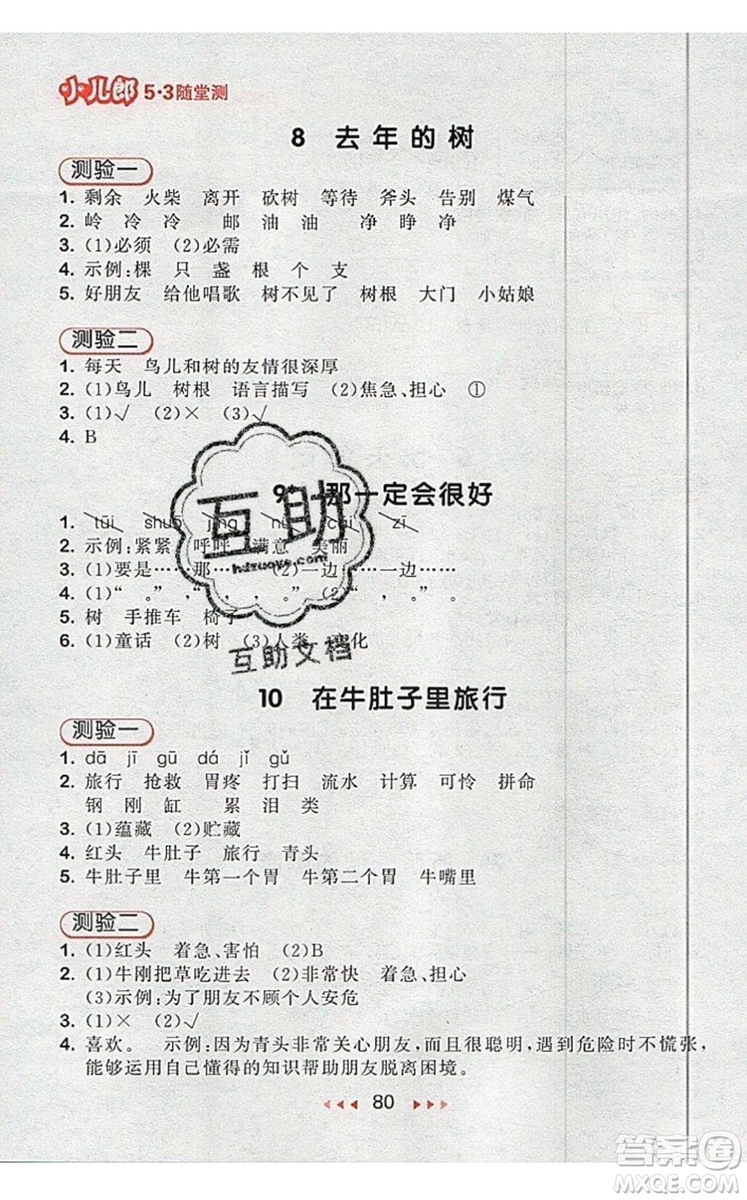 小儿郎 5·3随堂测
8 去年的树
测验一
1. 剩余 火柴 离开 砍树 等待 斧头 告别 煤气
2. 岭 冷 冷 邮 油 油 净 睁 净
3. (1)必须 (2)必需
4. 示例:棵 只 盏 根 个 支
5. 好朋友 给他唱歌 树不见了 树根 大门 小姑娘
测验二
1. 每天 鸟儿和树的友情很深厚
2. (1)鸟儿 树根 语言描写 (2)焦急、担心 ①
3. (1)√ (2)× (3)√
4. B
9* 那一定会很好
1. tuī shuō jīng nǔ cái zī
2. 示例:紧紧 呼呼 满意 美丽
3. (1)要是……那…… (2)一边……一边……
4. (1)“ 。”,“ , , 。” (2)“ , 。”
5. 树 手推车 椅子
6. (1)童话 (2)树 (3)人类 变化
互助
hdzuoye.com
互助文档
10 在牛肚子里旅行
测验一
1. dā jī gū dá jǐ gǔ
2. 旅行 抢救 胃疼 打扫 流水 计算 可怜 拼命
钢 刚 缸 累 泪 类
3. (1)蕴藏 (2)贮藏
4. 红头 牛肚子 旅行 青头
5. 牛肚子里 牛第一个胃 牛第二个胃 牛嘴里
测验二
1. (1)红头 着急、害怕 (2)B
2. (1)牛刚把草吃进去 (2)非常快 着急、担心
(3)示例:为了朋友不顾个人安危
3. (1)× (2)√
4. 喜欢。 示例:因为青头非常关心朋友,而且很聪明,遇到危险时不慌张,
能够运用自己懂得的知识帮助朋友脱离困境。
80
答案圈
MXQE.COM